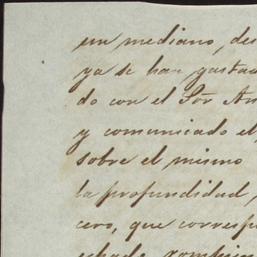 un mediano, des
ya se han gustad
do con el Sõr An
y comunicado el
sobre el mismo
la profundidad,
cero, que corresp
echado, rompien